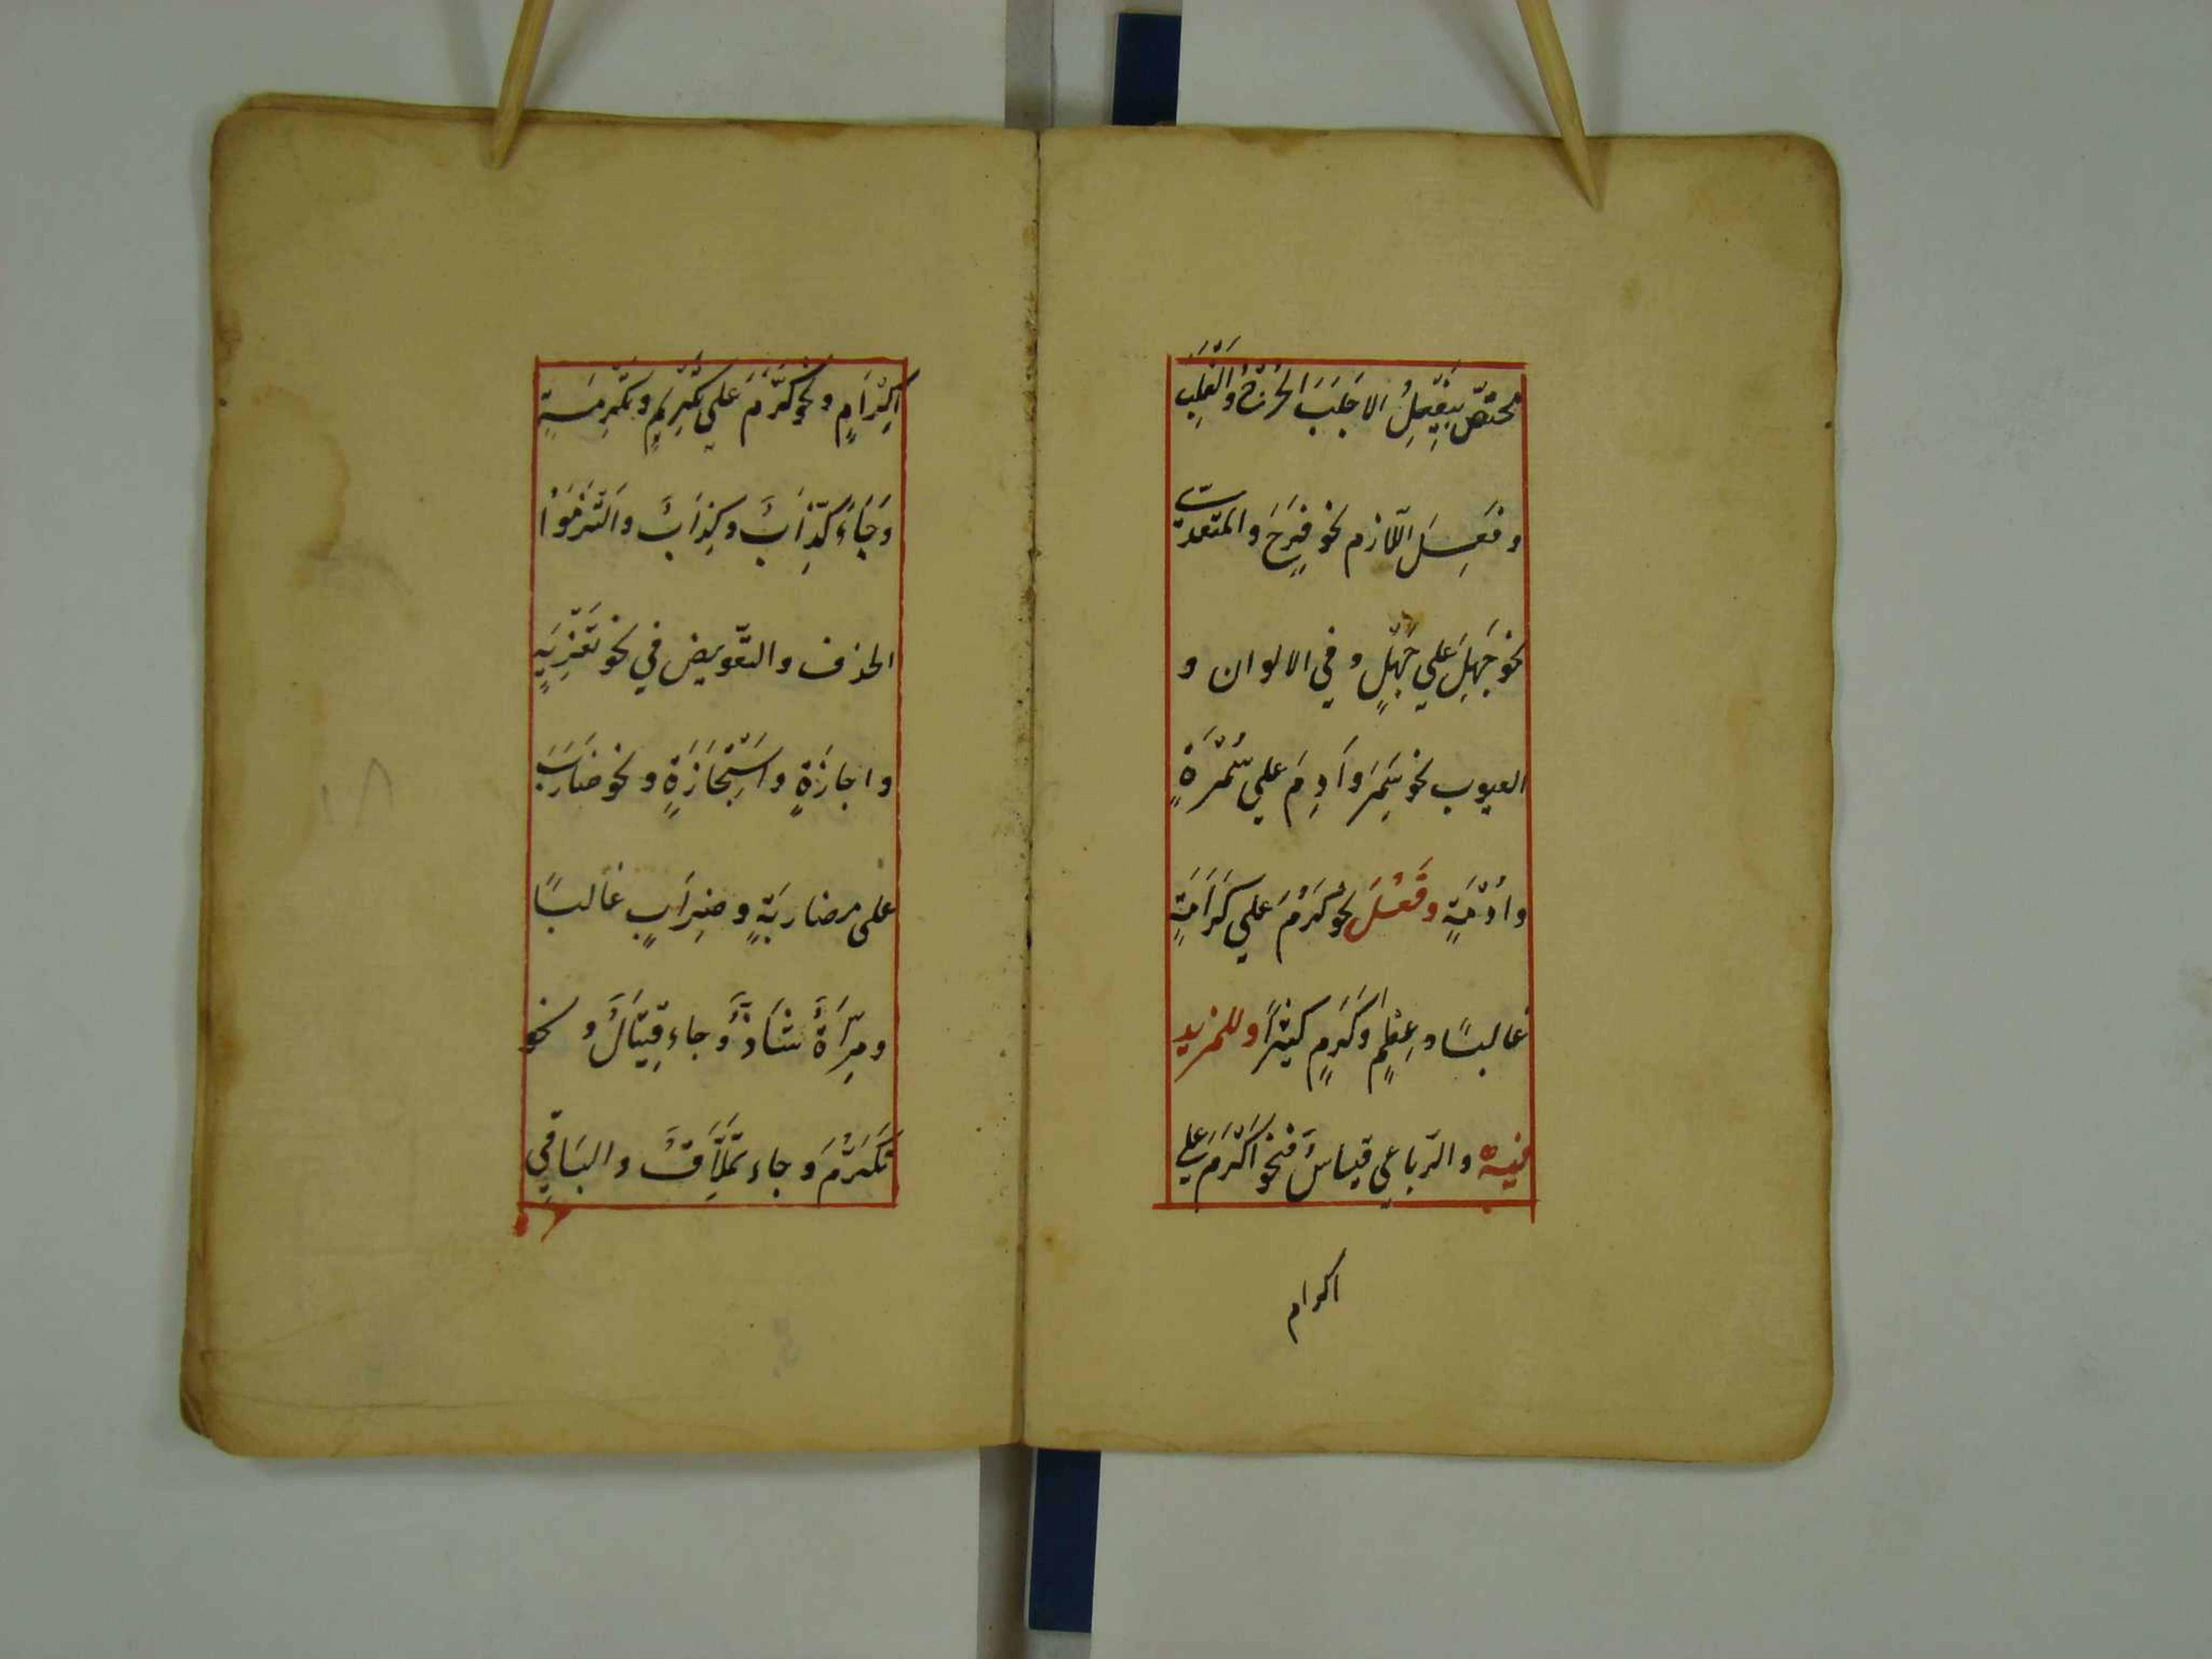 مختصّ بِيَفْعِلُ الا جَلَبَ الجُرْحُ والغَلَبَ
وفَعِلَ اللّازم نحو فَرِحَ والمتعدّي
نحو جَهِلَ علي جَهْلٍ وفي الالوان و
العيوب نحو سَمِرَ وأَدِمَ علي سُمْرَةٍ
وادْمَةٍ وفَعُلَ نحو كَرُمَ علي كَرَامَةٍ
غالبًا وعِظَمٍ وكَرَمٍ كثيرًا وللمزيد
فيه والرّباعي قياسٌ فنحو اكْرَمَ علي
اكرام
اِكْرَامٍ ونحو كَرَّمَ علي تَكْرِيمٍ وتَكْرِمَةٍ
وَجَاءَ كِذَّابٌ وكِذَابٌ والتَزَمُوْا
الحذف والتّعويض في نحو تَعْزِيَةٍ
واجازَةٍ واسْتِجَازَةٍ ونحو ضَارَبَ
على مضاربَةٍ وضِرَابٍ غالبًا
ومِرّاءٌ شَاذٌّ وجاء قِيتَالٌ و نحو
تَكَرَّمَ وجاء تِمِلَّاقٌ والبَاقِي
١٨